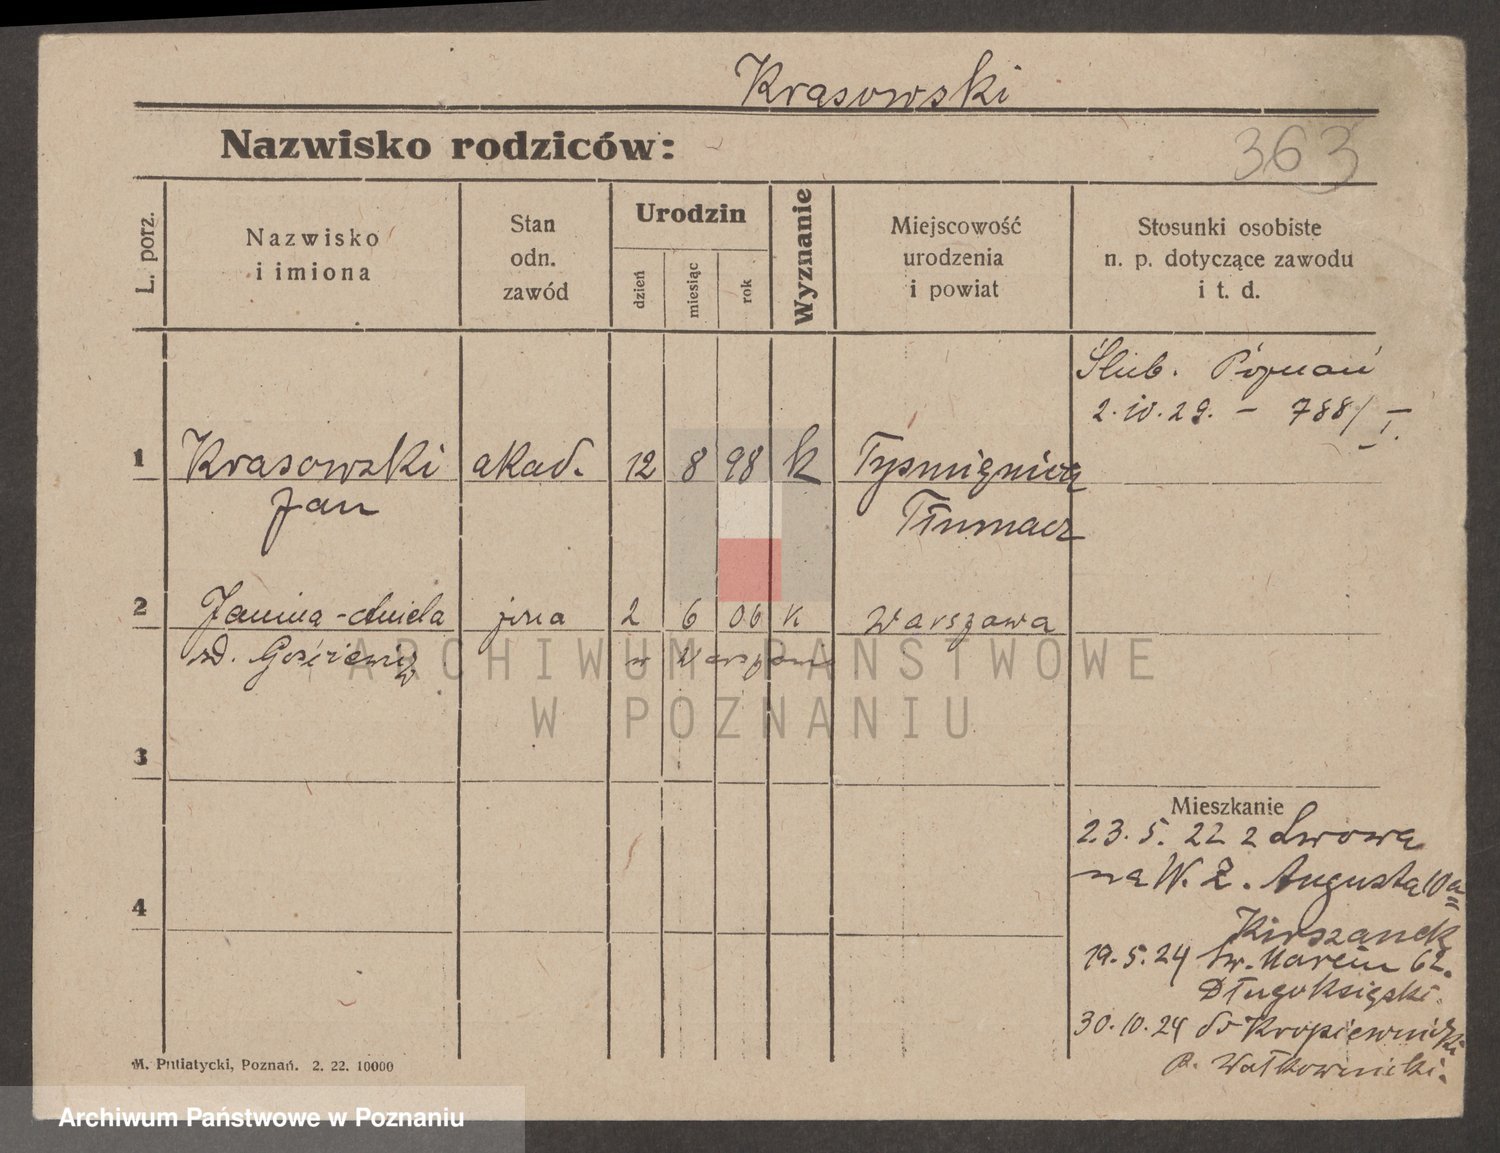 Krasowski
Nazwisko rodziców:
363
L. porz.
Nazwisko
i imiona
Stan
odn.
zawód
Urodzin
dzień
miesiąc
rok
Wyznanie
Miejscowość
urodzenia
i powiat
Stosunki osobiste
n. p. dotyczące zawodu
i t. d.
Ślub. Poznań
2.10.29. - 788/I.
1 Krasowski akad. 12 8 98 k Tyśmienica
Jan Tłumacz
2 Janina-Aniela żona 2 6 06 k Warszawa
w Warszawie
ARCHIWUM PAŃSTWOWE
W POZNANIU
3
4
Mieszkanie
23. 5. 22 z Lwowa
na W. Z. Augusta 10a
19. 5. 24 św. Marcin 62.
30. 10. 24 do
M. Putiatycki, Poznań. 2. 22. 10000
Archiwum Państwowe w Poznaniu